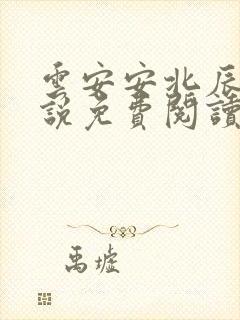 雲安安北辰
說免費閱讀
禹墟